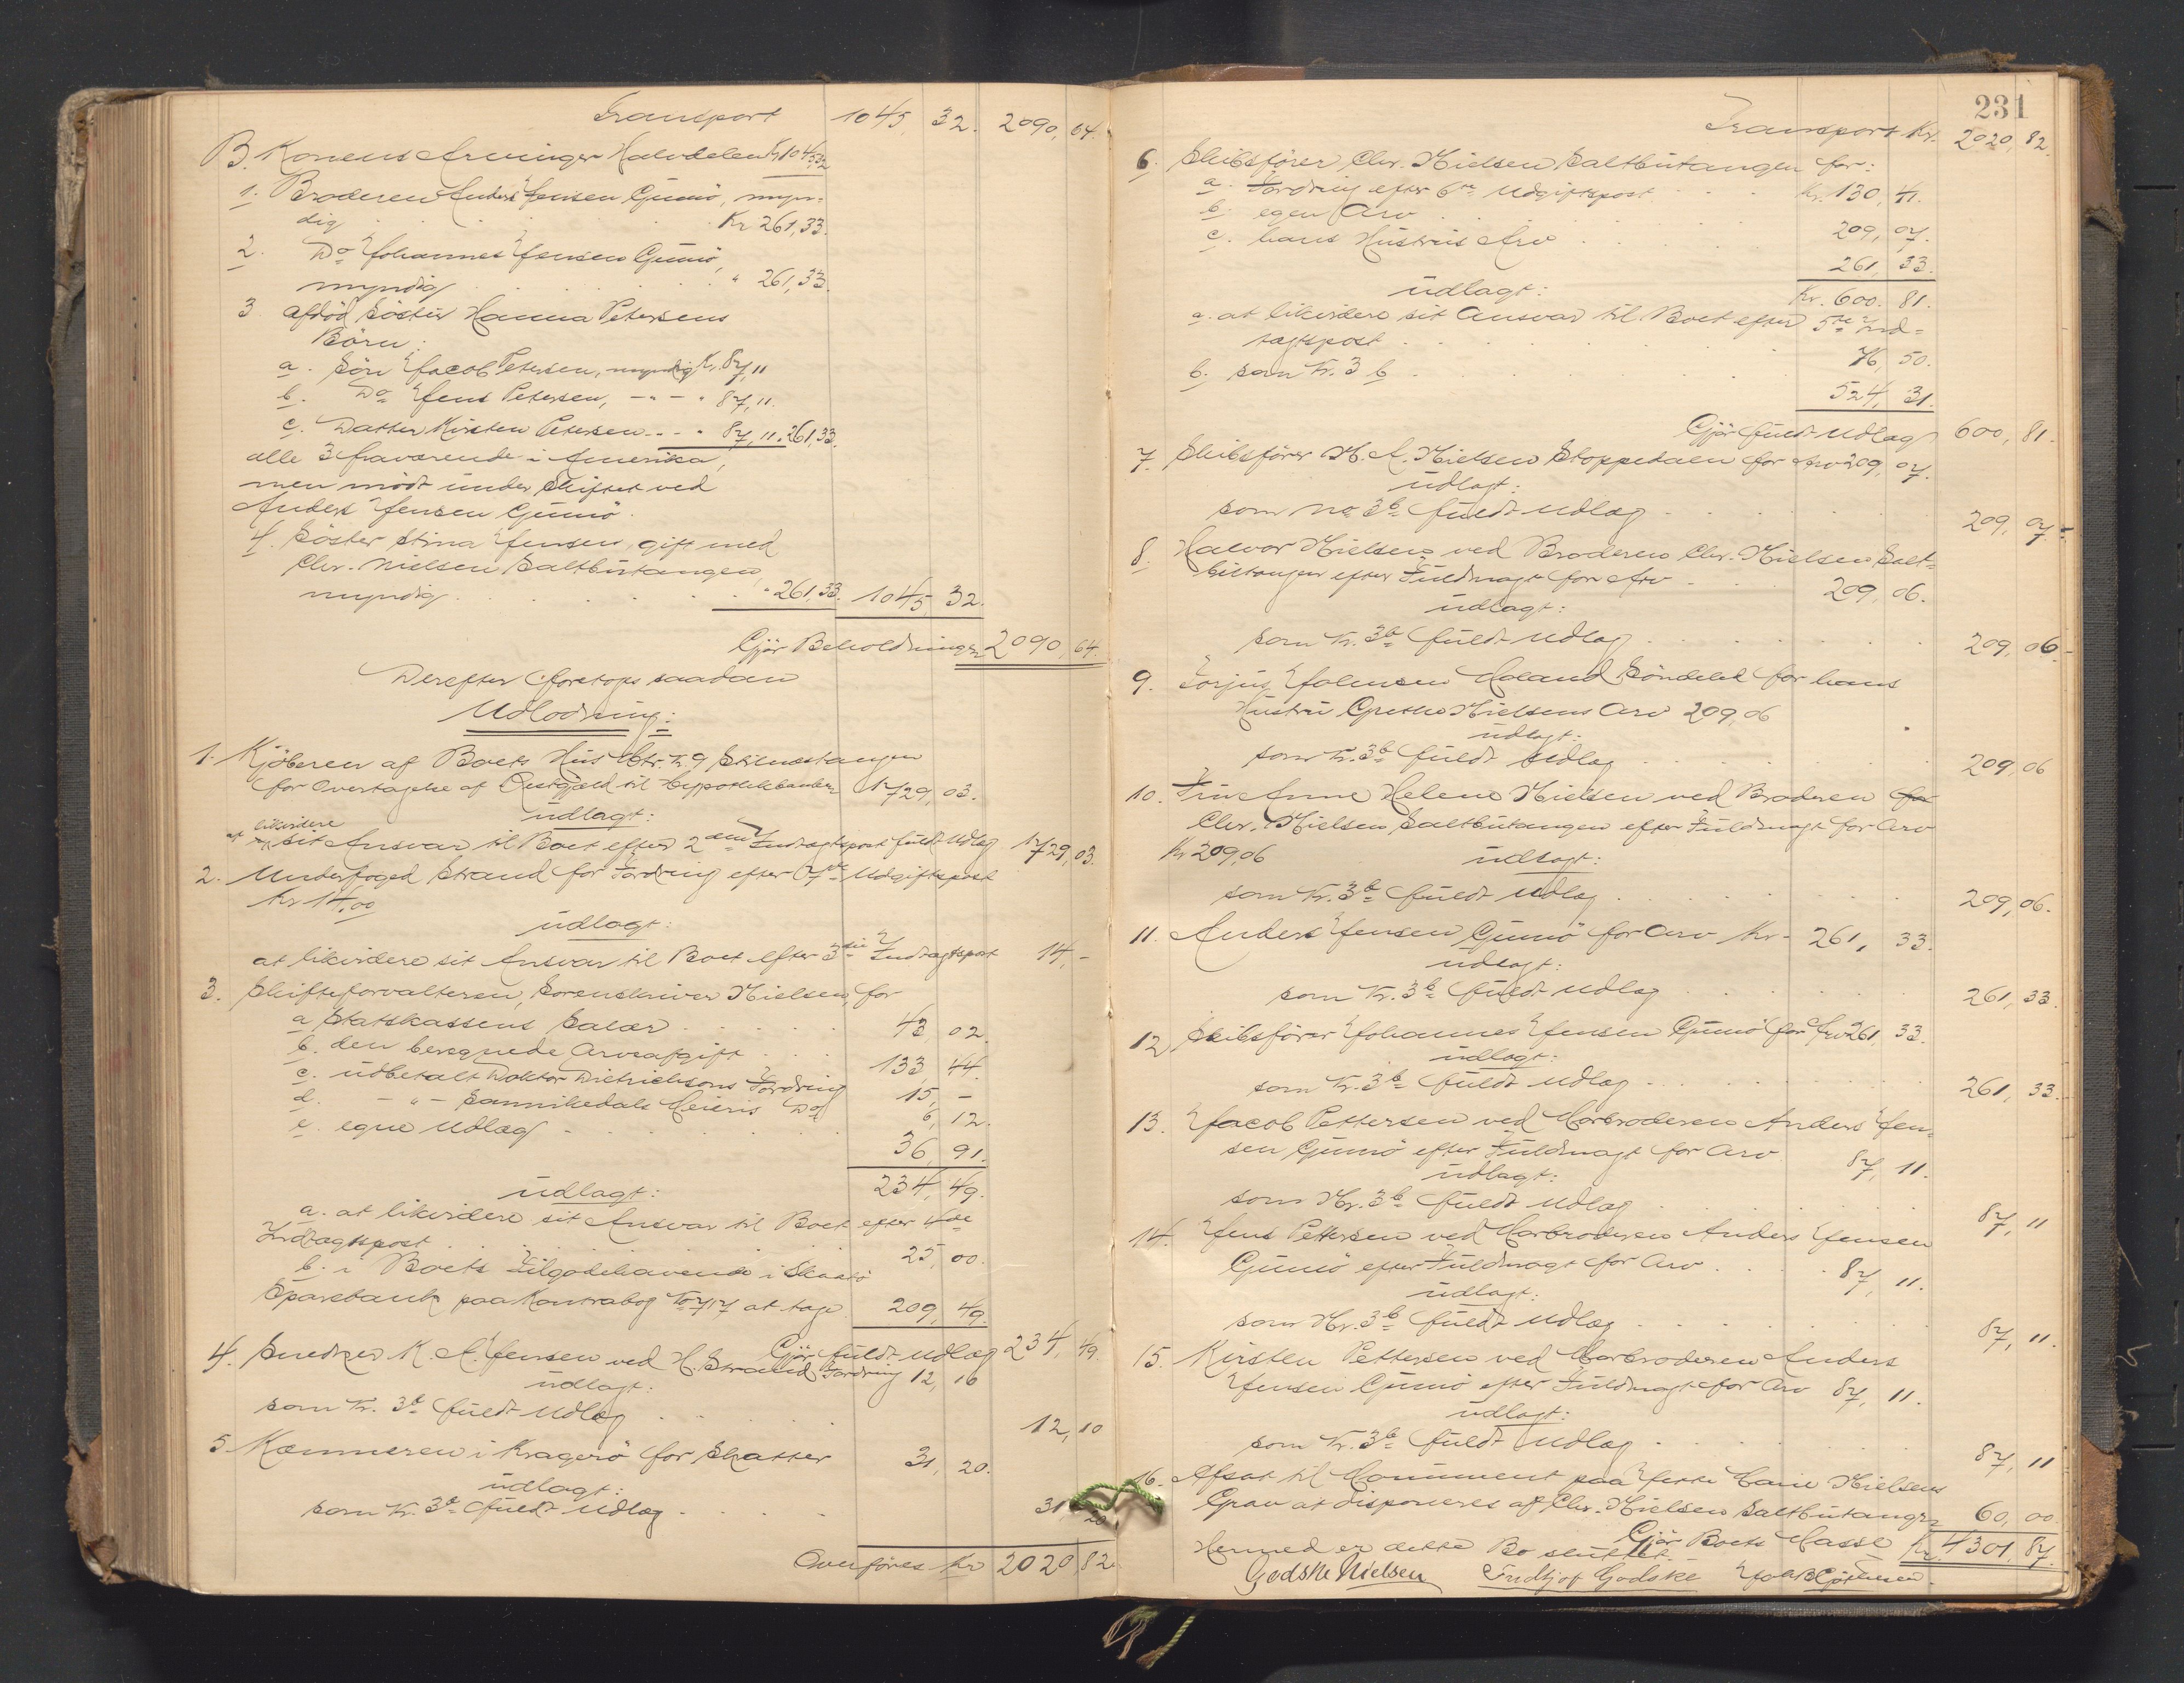 Transport 1045, 32. 2090, 64.
B. Konens Arvinger Halvdelen Kr 1045,32
1. Broderen Anders Jensen Gumö, myn-
dig . . . . Kr 261,33.
2. Do Johannes Jensen Gumö,
myndig . . . . " 261,33.
3. afdöd Söster Hanna Petersens
Börn:
a. Sön Jacob Petersen, myndig Kr. 87,11
b. Do Jens Petersen, - " - " 87,11.
c. Datter Kirsten Petersen - " - " 87,11. 261,33.
alle 3 fraværende i Amerika,
men mödt under Skiftet ved
Anders Jensen Gumö.
4. Söster Stina Jensen, gift med
Chr. Nielsen Saltbutangen,
myndig . . . . " 261,33. 1045, 32.
Gjör Beholdningen 2090, 64.
Derefter foretoges saadan
Udlodning:
1. Kjöberen af Boets Hus Mtr. No 9 Stilnestangen
for Overtagelse af Restgjæld til Hypothekbanken 1729, 03.
udlagt:
at likvidere sit Ansvar til Boet efter 2den Indtægtspost fuldt Udlæg 1729,03.
2. Underfoged Strand for Fordring efter 7de Udgiftspost
Kr 14,00
udlagt:
at likvidere sit Ansvar til Boet efter 3die Indtægtspost 14, -
3. Skifteforvalteren, Sorenskriver Nielsen, for
a. Statskassens Salær . . . . 43, 02.
b. den beregnede Arveafgift . . . 133, 44.
c. udbetalt Doktor Dietrichsons Fordring 15, -
d. - " - Sannikedals Meieris Do 6, 12.
e. egne Udlæg . . . . 36, 91.
234, 49.
udlagt:
a. at likvidere sit Ansvar til Boet efter 4de
Indtægtspost . . . . 25, 00.
b. i Boets Tilgodehavende i Skaatö
Sparebank paa Kontrabog No 717 at tage 209, 49.
Gjör fuldt Udlæg 234, 49.
4. Snedker K. A. Jensen ved H. Strand Fordring 12, 10
udlagt:
som No. 3b fuldt Udlæg . . . . 12, 10
5. Kæmneren i Kragerö for Skatter 31, 20.
udlagt:
som No. 3b fuldt Udlæg . . . . 31 20.
Overföres Kr 2020, 82.
231
Transport Kr. 2020, 82.
6. Skibsförer Chr. Nielsen Saltbutangen for:
a. Fordring efter 6te Udgiftspost . . . Kr. 130, 41.
b. egen Arv . . . . 209, 07.
c. hans Hustrus Arv . . . . 261, 33.
Kr. 600. 81.
udlagt:
a. at likvidere sit Ansvar til Boet efter 5te Ind-
tægtspost . . . . 76, 50.
b. som No. 3 b . . . . 524, 31.
Gjör fuldt Udlæg 600, 81.
7. Skibsförer N. A. Nielsen Stoppedalen for Arv 209, 07.
udlagt:
som No 3b fuldt Udlæg . . . . 209, 07.
8. Halvor Nielsen ved Broderen Chr. Nielsen Salt-
butangen efter Fuldmagt for Arv . . . 209, 06.
udlagt:
som No. 3b fuldt Udlæg . . . . 209, 06.
9. Torjus Johnsen Holand Söndeled for hans
Hustru Grethe Nielsens Arv 209,06
udlagt:
som No. 3b fuldt Udlæg . . . . 209,06
10. Fru Anne Helene Nielsen ved Broderen for
Chr. Nielsen Saltbutangen efter Fuldmagt for Arv
Kr 209,06
udlagt:
som No. 3b fuldt Udlæg . . . . 209,06.
11. Anders Jensen Gumö for Arv Kr. 261, 33.
udlagt:
som No. 3b fuldt Udlæg . . . . 261, 33.
12. Skibsförer Johannes Jensen Gumö for Arv 261, 33.
udlagt:
som No. 3b fuldt Udlæg . . . . 261, 33.
13. Jacob Pettersen ved Morbroderen Anders Jen-
sen Gumö efter Fuldmagt for Arv 87, 11.
udlagt:
som Nr. 3b fuldt Udlæg . . . . 87, 11
14. Jens Pettersen ved Morbroderen Anders Jensen
Gumö efter Fuldmagt for Arv . . . 87, 11.
udlagt:
som Nr. 3b fuldt Udlæg . . . . 87, 11.
15. Kirsten Pettersen ved Morbroderen Anders
Jensen Gumö efter Fuldmagt for Arv 87, 11.
udlagt:
som No. 3b fuldt Udlæg . . . . 87, 11
16. Afsat til Monument paa Jette Marie Nielsens
Grav at disponeres af Chr. Nielsen Saltbutangen 60, 00.
Gjör Boets Masse Kr. 4301, 87.
Hermed er dette Bo sluttet.
Godske Nielsen Fridtjof Godske